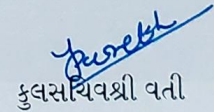 કુલસચિવશ્રી વતી